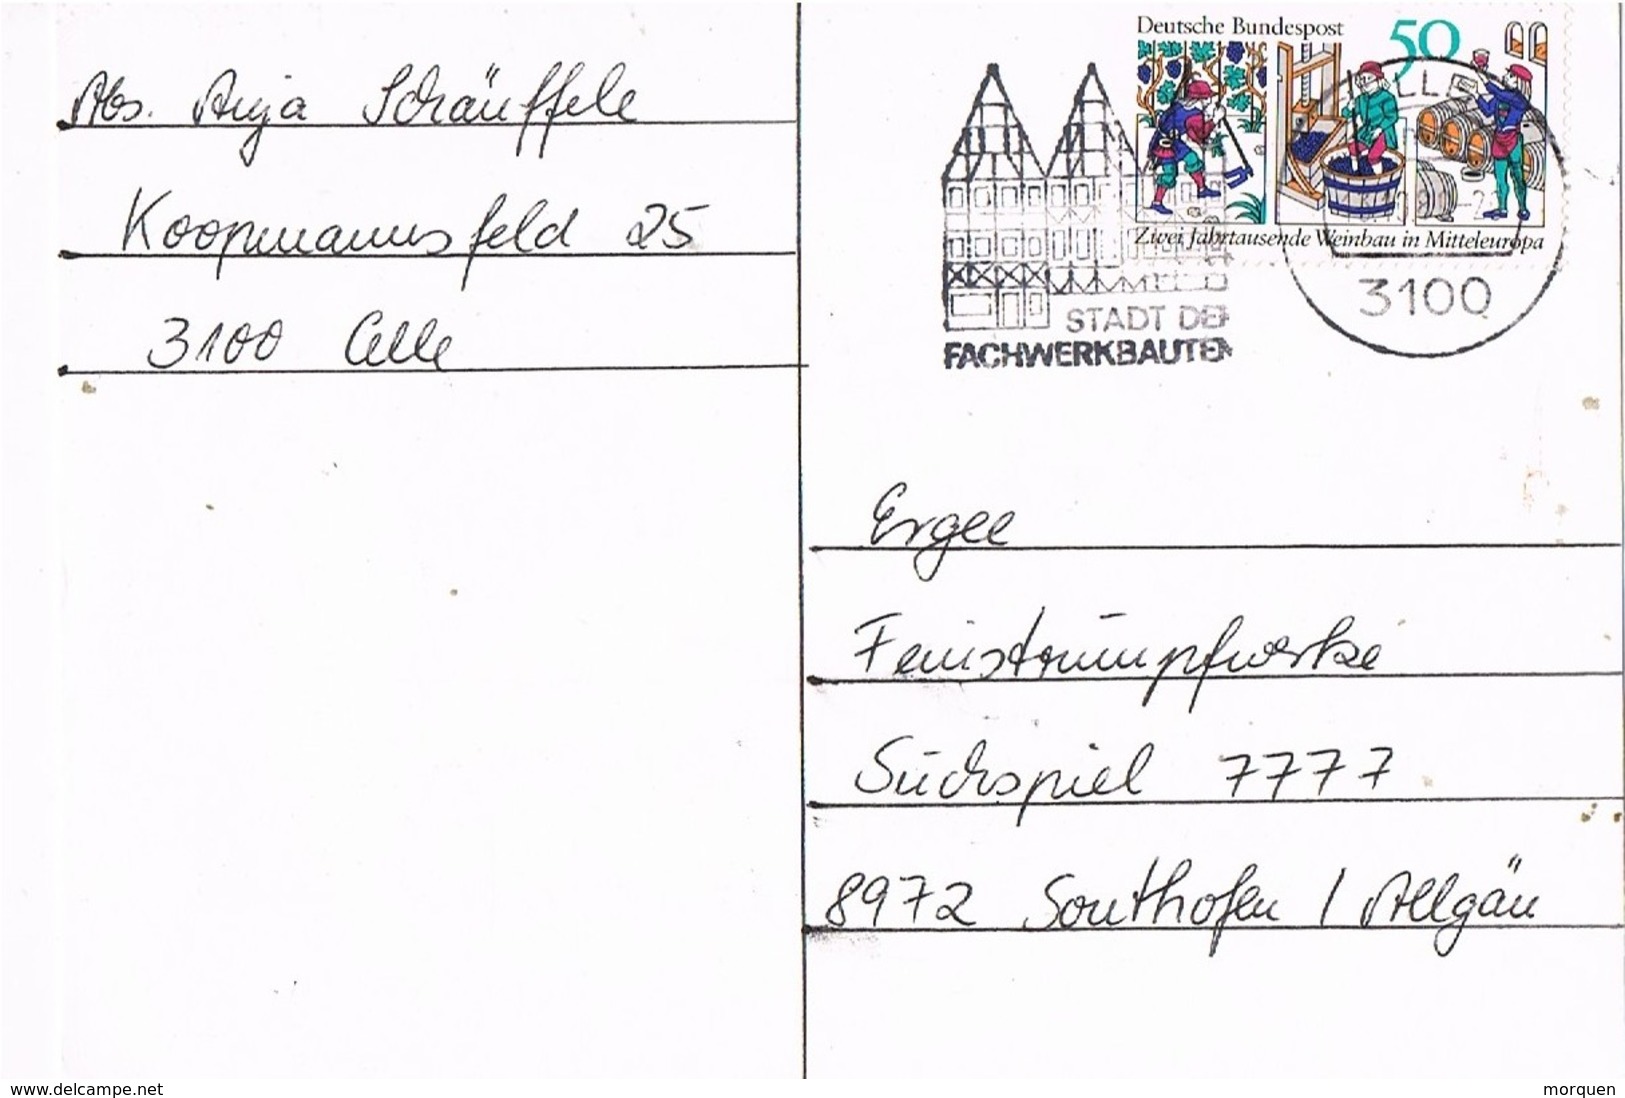 Abs. Anja Schäuffele
Koopmannsfeld 25
3100 Celle
Deutsche Bundespost 50
Zwei Jahrtausende Weinbau in Mitteleuropa
STADT DER
FACHWERKBAUTEN
3100
Ergee
Feinstrumpfwerke
Suchspiel 7777
8972 Sonthofen / Allgäu
www.delcampe.net
morquen